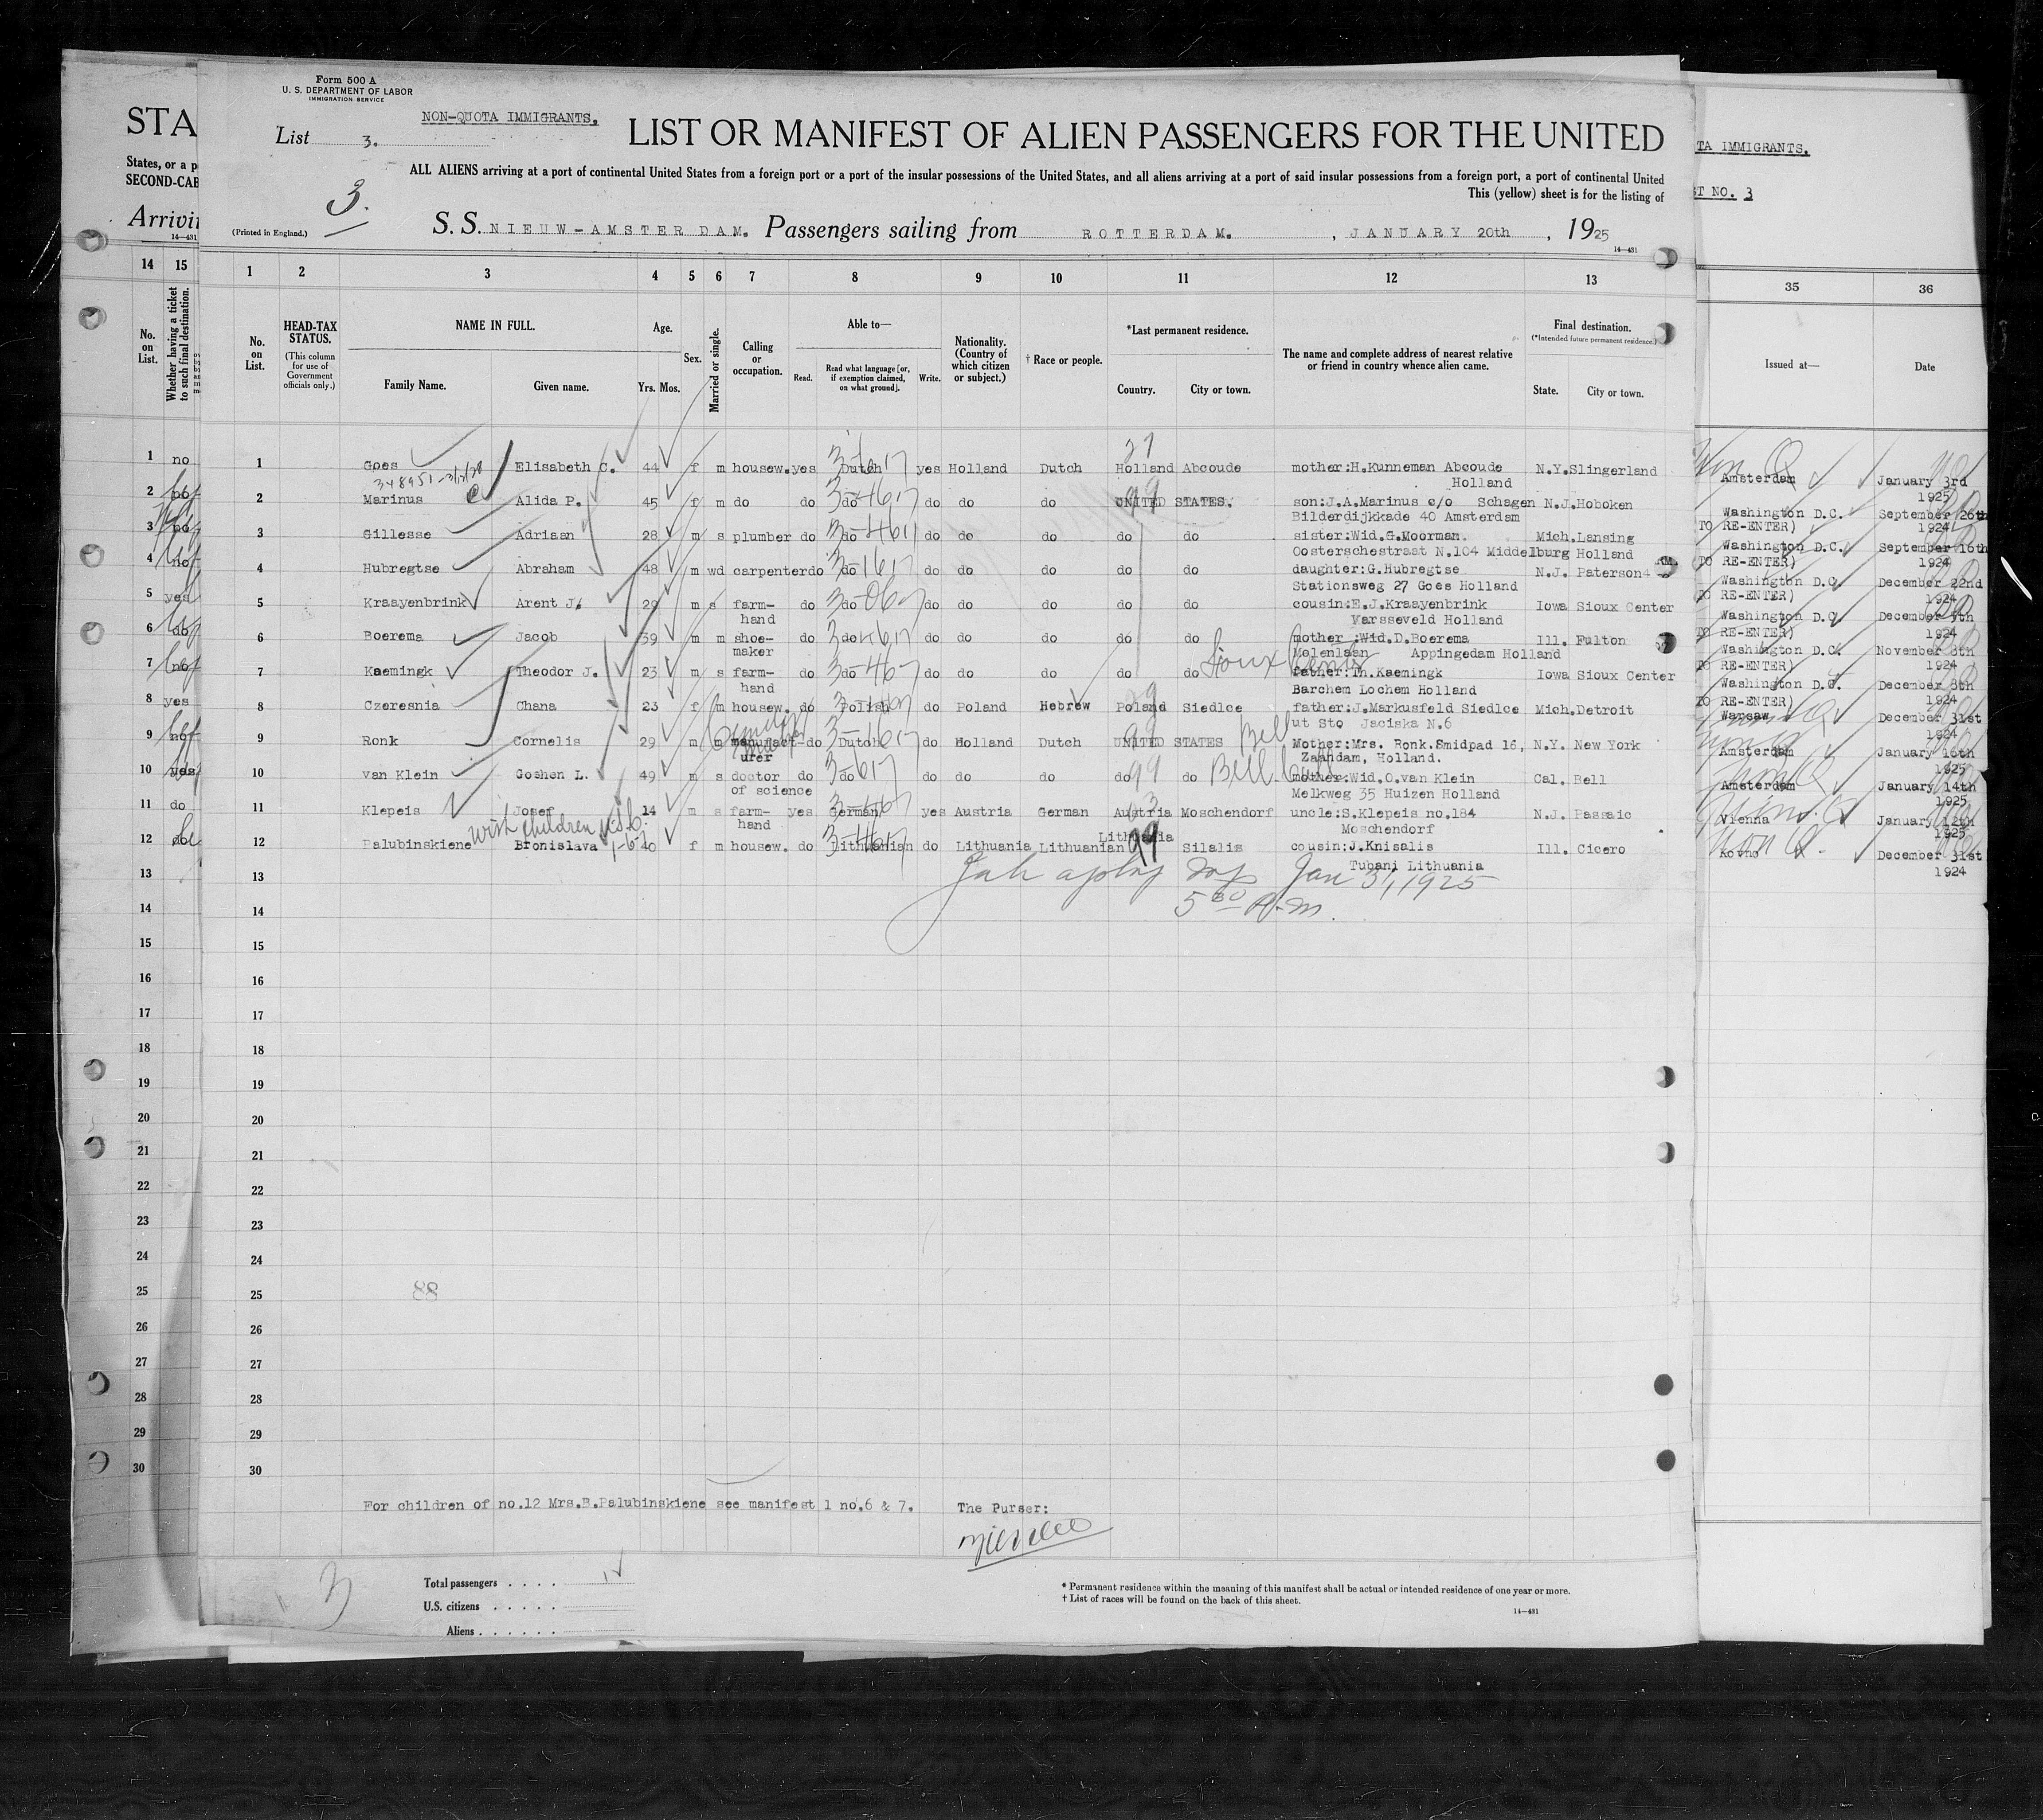 Form 500 A
U. S. DEPARTMENT OF LABOR
IMMIGRATION SERVICE
NON-QUOTA IMMIGRANTS.
List 3.
LIST OR MANIFEST OF ALIEN PASSENGERS FOR THE UNITED
ALL ALIENS arriving at a port of continental United States from a foreign port or a port of the insular possessions of the United States, and all aliens arriving at a port of said insular possessions from a foreign port, a port of continental United
This (yellow) sheet is for the listing of
3.
(Printed in England.)
S. S. NIEUW-AMSTERDAM. Passengers sailing from ROTTERDAM. , JANUARY 20th , 1925
14—431
STA
States, or a p
SECOND-CAB
Arrivi
14—431
TA IMMIGRANTS.
ST NO. 3
14 15
1 2 3 4 5 6 7 8 9 10 11 12 13
35 36
No. on List.
Whether having a ticket to such final destination.
No. on List.
HEAD-TAX STATUS.
(This column for use of Government officials only.)
NAME IN FULL.
Family Name. Given name.
Age.
Yrs. Mos.
Sex.
Married or single.
Calling or occupation.
Able to—
Read.
Read what language [or, if exemption claimed, on what ground].
Write.
Nationality. (Country of which citizen or subject.)
† Race or people.
*Last permanent residence.
Country. City or town.
The name and complete address of nearest relative or friend in country whence alien came.
Final destination.
(*Intended future permanent residence.)
State. City or town.
Issued at—
Date
1 no
1 Goes Elisabeth C. 44 f m housew. yes Dutch yes Holland Dutch Holland Abcoude mother:H.Kunneman Abcoude N.Y. Slingerland
Holland
Amsterdam January 3rd
1925
2 Marinus Alida P. 45 f m do do do do do do UNITED STATES. son:J.A.Marinus c/o Schagen N.J. Hoboken
Bilderdijkkade 40 Amsterdam
Washington D.C. September 26th
TO RE-ENTER) 1924
3 Gillesse Adriaan 28 m s plumber do do do do do do do sister:Wid.G.Moorman. Mich. Lansing
Oosterschestraat N.104 Middelburg Holland
Washington D.C. September 16th
TO RE-ENTER) 1924
4 Hubregtse Abraham 48 m wd carpenter do do do do do do do daughter:G.Hubregtse N.J. Paterson
Stationsweg 27 Goes Holland
Washington D.C. December 22nd
TO RE-ENTER) 1924
5 yes
5 Kraayenbrink Arent J. 29 m s farm- do do do do do do do cousin:E.J.Kraayenbrink Iowa Sioux Center
hand Varsseveld Holland
Washington D.C December
TO RE-ENTER) 1924
6 do
6 Boerema Jacob 39 m m shoe- do do do do do do do mother :Wid.D.Boerema Ill. Fulton
maker Molenlaan Appingedam Holland
Washington D.C. November 8th
TO RE-ENTER) 1924
7 no
7 Kaemingk Theodor J. 23 m s farm- do do do do do do do father:Th.Kaemingk Iowa Sioux Center
hand Barchem Lochem Holland
Washington D.C. December 8th
TO RE-ENTER) 1924
8 yes
8 Czeresnia Chana 23 f m housew. do Polish do Poland Hebrew Poland Siedlce father:J.Markusfeld Siedlce Mich. Detroit
ut Sto Jaciska N.6
Warsaw December 31st
1924
9
9 Ronk Cornelis 29 m m manufact- do Dutch do Holland Dutch UNITED STATES Mother:Mrs. Ronk.Smidpad 16, N.Y. New York
urer Zaandam, Holland.
Amsterdam January 16th
1925
10
10 van Klein Goshen L. 49 m s doctor do do do do do do do mother:Wid.O.van Klein Cal. Bell
of science Melkweg 35 Huizen Holland
Amsterdam January 14th
1925
11 do
11 Klepeis Josef 14 m s farm- yes German yes Austria German Austria Moschendorf uncle:S.Klepeis no.184 N.J. Passaic
hand Moschendorf
Vienna January 12th
1925
with children
12
12 Palubinskiene Bronislava 40 f m housew. do Lithuanian do Lithuania Lithuanian Lithuania Silalis cousin:J.Knisalis Ill. Cicero
Tubani Lithuania
Kovno December 31st
1924
Jan 31, 1925
5 30 A.m.
13
14
15
16
17
18
19
20
21
22
23
24
25
26
27
28
29
30
88
For children of no.12 Mrs.B.Palubinskiene see manifest 1 no.6 & 7.
The Purser:
3
Total passengers . . . .
U.S. citizens . . . . .
Aliens . . . . . .
* Permanent residence within the meaning of this manifest shall be actual or intended residence of one year or more.
† List of races will be found on the back of this sheet.
14—431